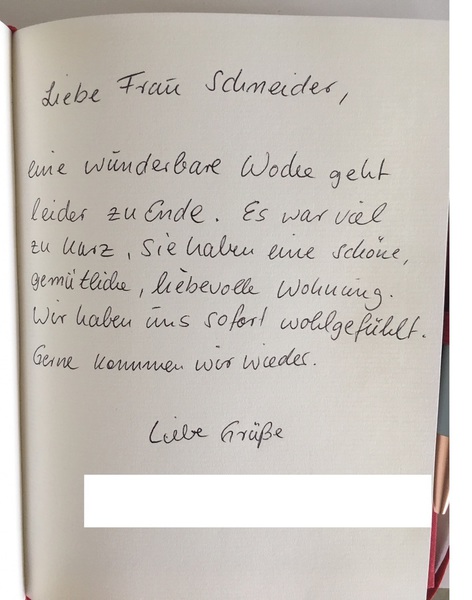 Liebe Frau Schneider,
eine wunderbare Woche geht
leider zu Ende. Es war viel
zu kurz, Sie haben eine schöne,
gemütliche, liebevolle Wohnung.
Wir haben uns sofort wohlgefühlt.
Gerne kommen wir wieder.
Liebe Grüße